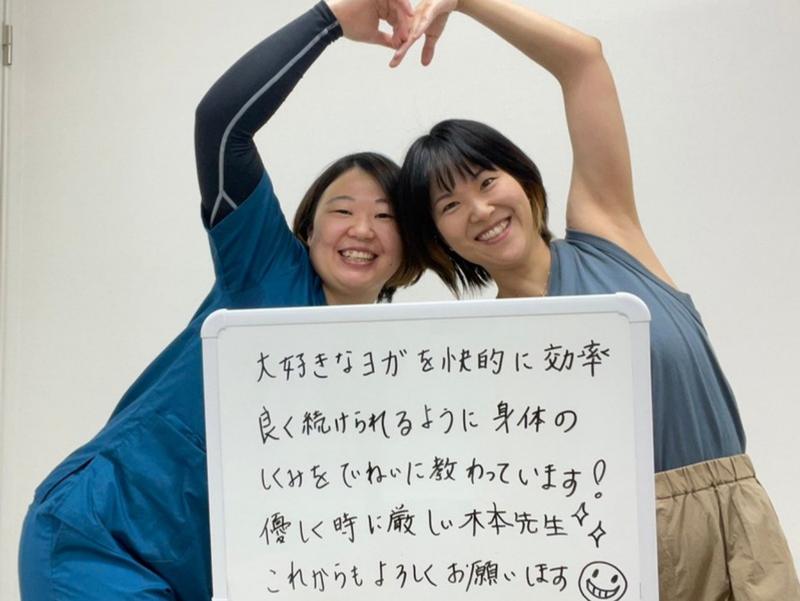 大好きなヨガを快的に効率
良く続けられるように身体の
しくみをていねいに教わっています!
優しく時に厳しい木本先生
これからもよろしくお願いします